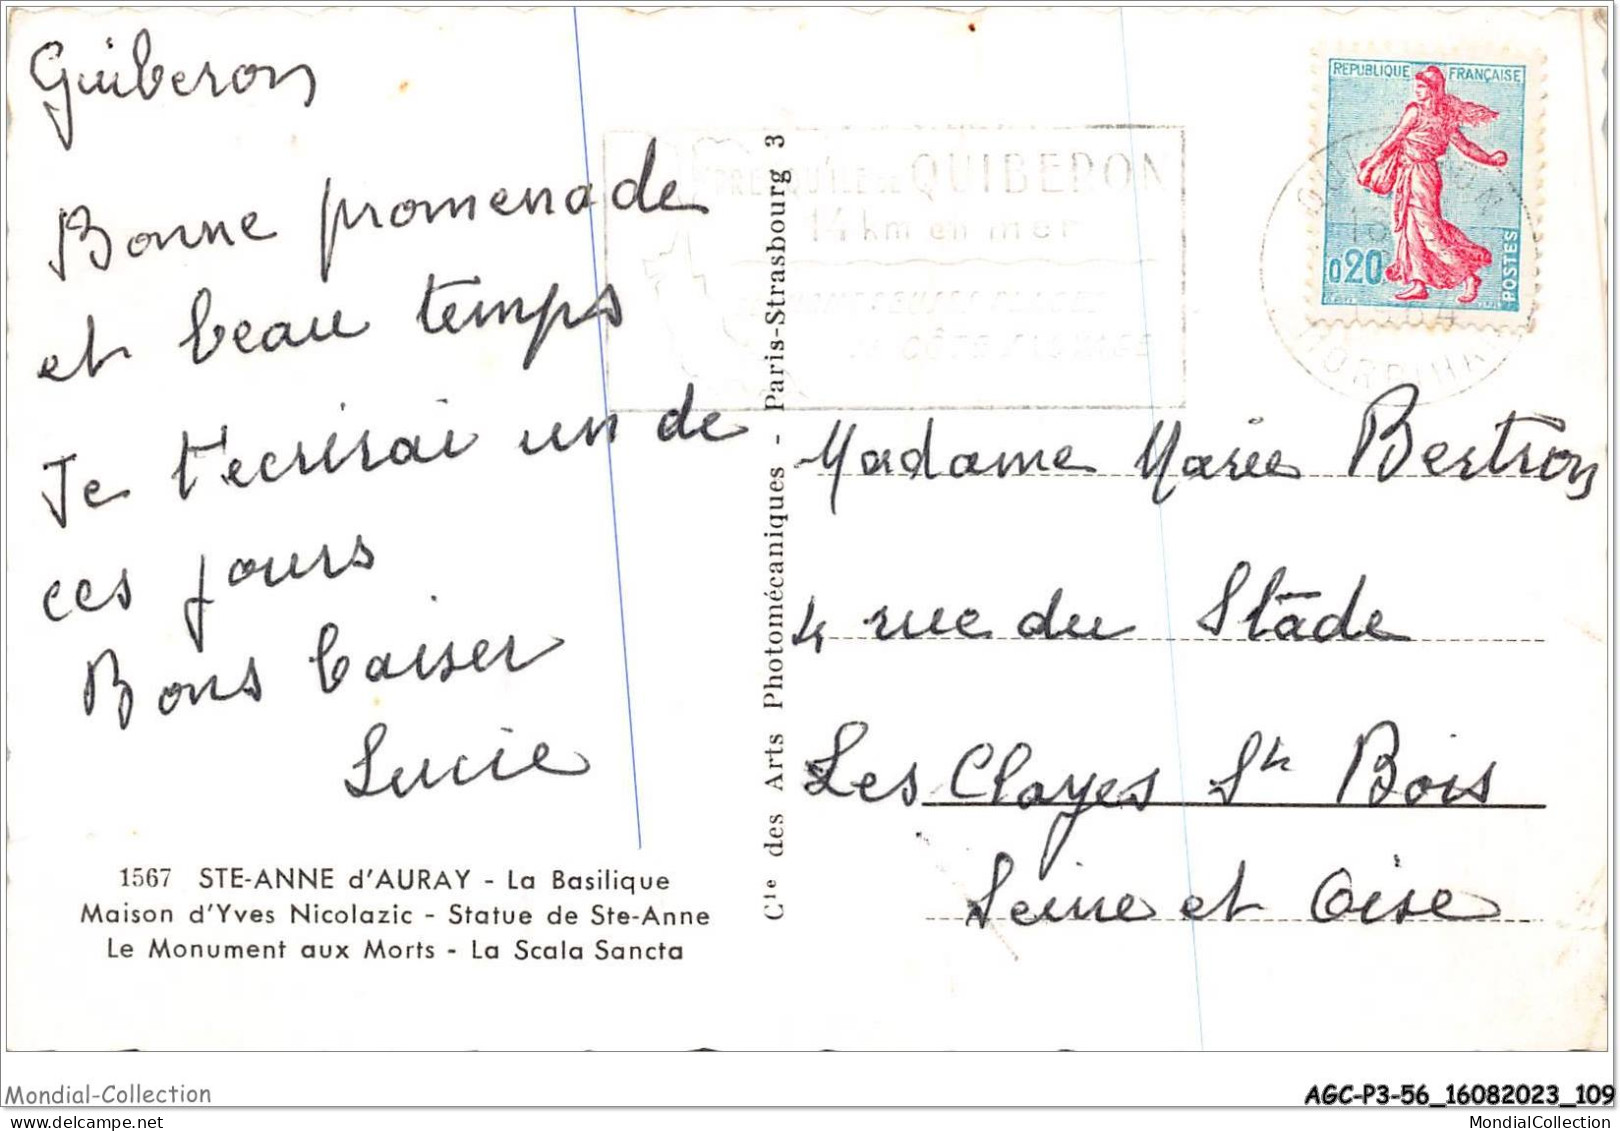 Guiberon
Bonne promenade
et beau temps
Je t'ecrirai un de
ces jours
Bons baiser
Lucie
1567 STE-ANNE d'AURAY - La Basilique
Maison d'Yves Nicolazic - Statue de Ste-Anne
Le Monument aux Morts - La Scala Sancta
Cie des Arts Photomécaniques - Paris-Strasbourg 3
PRESQU'ILE de QUIBERON
14 km en mer
REPUBLIQUE FRANÇAISE
0,20
POSTES
MORBIHAN
Madame Marie Bertron
4 rue du Stade
Les Clayes St Bois
Seine et Oise
Mondial-Collection
AGC-P3-56_16082023_109
MondialCollection